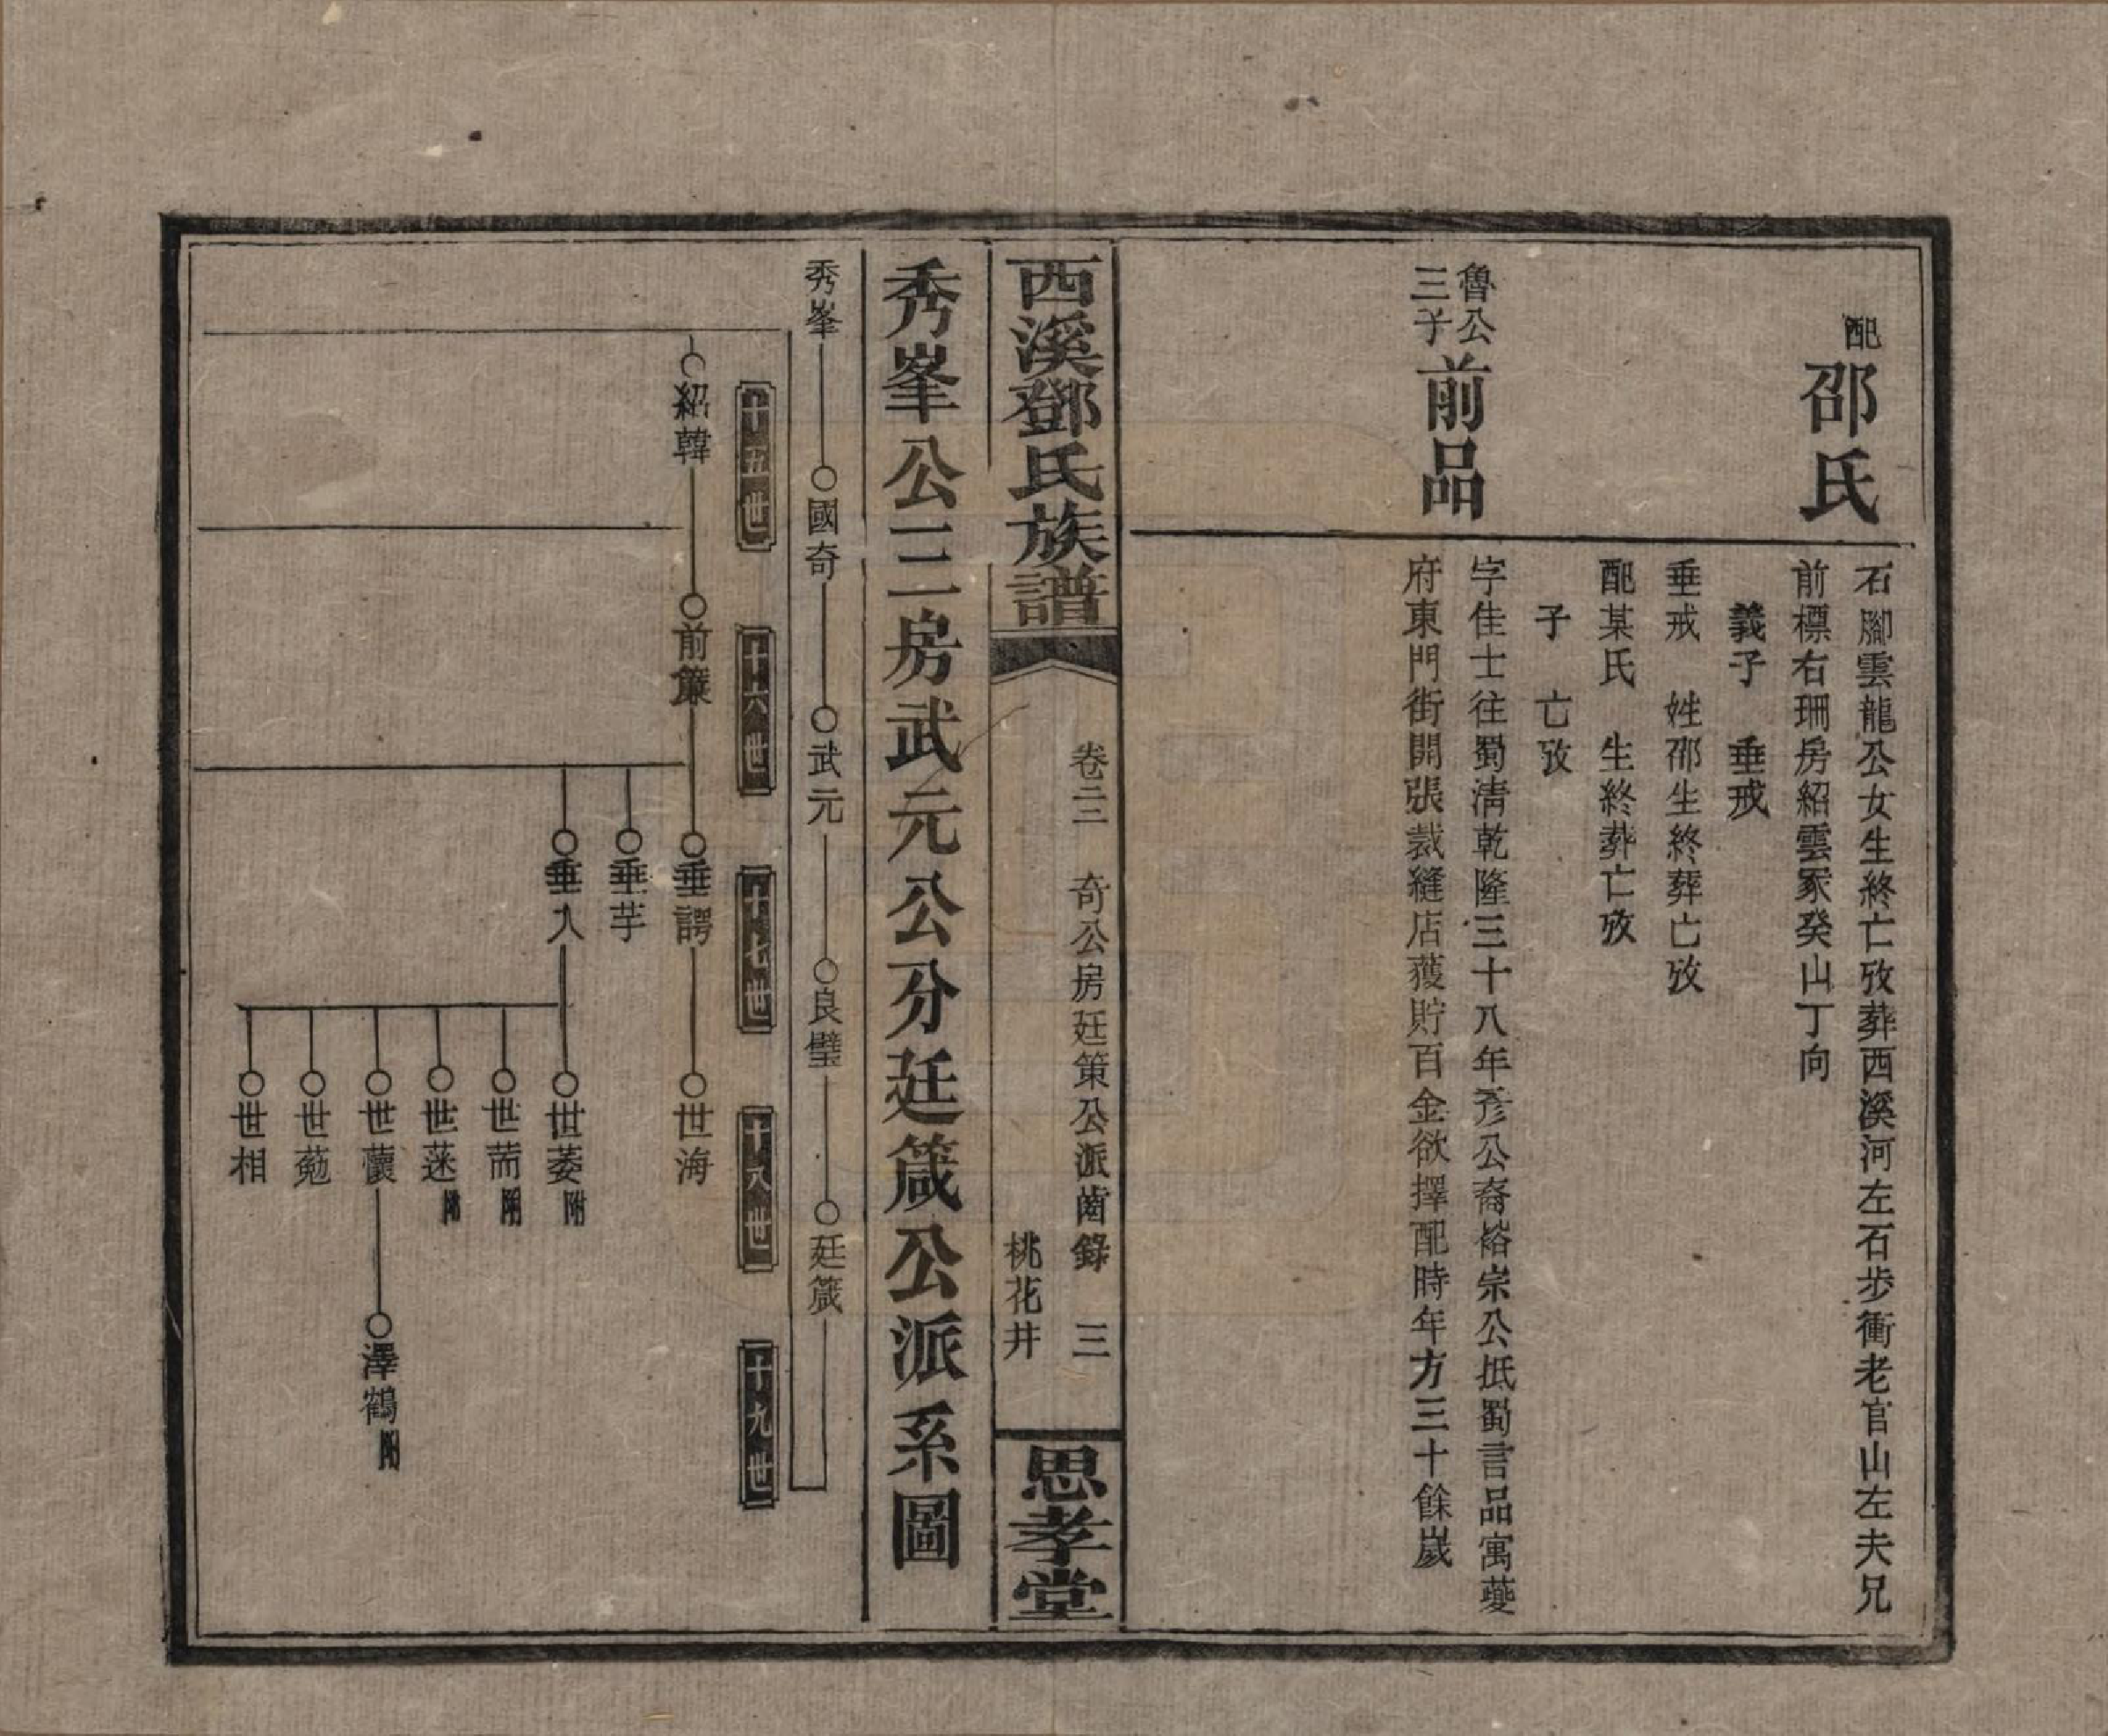 配
邵氏
石腳雲龍公女生終亡攷葬西溪河左石步衝老官山左夫兄
前標右珊房紹雲冢癸山丁向
義子　垂戒
垂戒　姓邵生終葬亡攷
配某氏　生終葬亡攷
子　亡攷
魯公
三子
前品
字佳士往蜀清乾隆三十八年彥公裔裕宗公抵蜀言品寓夔
府東門街開張裁縫店獲貯百金欲擇配時年方三十餘歲
西溪鄧氏族譜
卷二三　奇公房廷策公派齒錄　三
桃花井
思孝堂
秀峯公三房武元公分廷箴公派系圖
秀峯　國奇　武元　良璧　廷箴
十五世　十六世　十七世　十八世　十九世
紹韓　前簾　垂諤　世海
垂芋
垂入　世萎附
世萳附
世蒁附
世藚　澤鶴附
世葂
世相